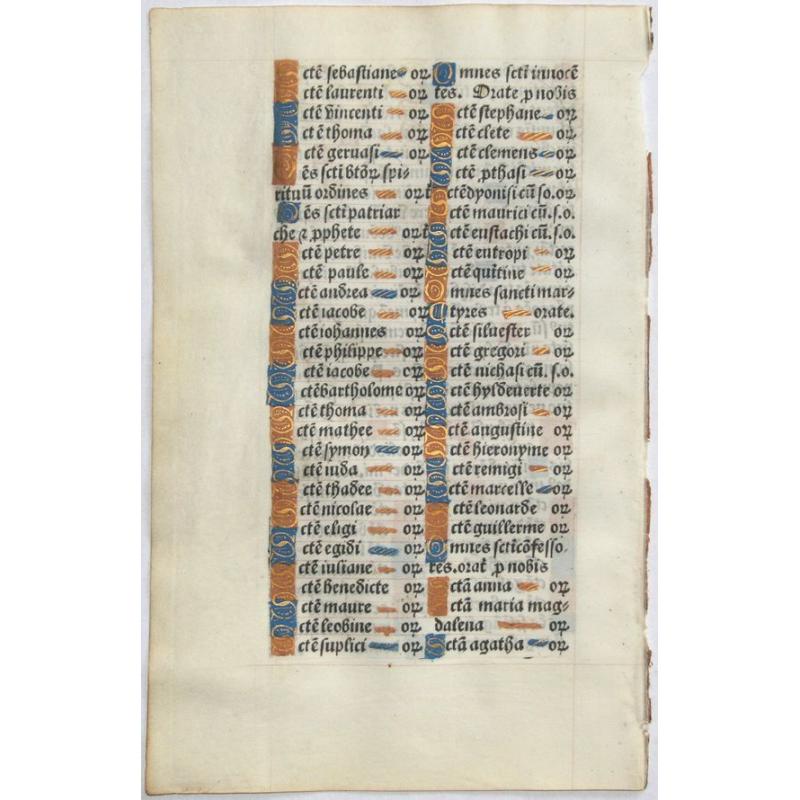 Sctē sebastiane or̄
Sctē laurenti or̄
Sctē vincenti or̄
Sctē thoma or̄
Sctē geruasi or̄
Oēs sctī btōꝝ spi-
rituū ordines or̄
Oēs sctī patriar
che ⁊ ꝓphete or̄
Sctē petre or̄
Sctē paule or̄
Sctē andrea or̄
Sctē iacobe or̄
Sctē iohannes or̄
Sctē philippe or̄
Sctē iacobe or̄
Sctē bartholome or̄
Sctē thoma or̄
Sctē mathee or̄
Sctē symon or̄
Sctē iuda or̄
Sctē thadee or̄
Sctē nicolae or̄
Sctē eligi or̄
Sctē egidi or̄
Sctē iuliane or̄
Sctē benedicte or̄
Sctē maure or̄
Sctē leobine or̄
Sctē suplici or̄
Omnes sctī innocē
tes. Orate ꝓ nobis
Sctē stephane or̄
Sctē clete or̄
Sctē clemens or̄
Sctē ꝓthasi or̄
Sctē dyonisi cū so. or̄
Sctē maurici cū. s. o.
Sctē eustachi cū. s. o.
Sctē eutropi or̄
Sctē quītine or̄
Omnes sancti mar-
tyres orate.
Sctē siluester or̄
Sctē gregori or̄
Sctē nichasi cū. s. o.
Sctē hyldeuerte or̄
Sctē ambrosi or̄
Sctē augustine or̄
Sctē hieronyme or̄
Sctē remigi or̄
Sctē marcelle or̄
Sctē leonarde or̄
Sctē guillerme or̄
Omnes sctī cōfesso-
res. orat̄ ꝓ nobis
Sctā anna or̄
Sctā maria mag-
dalena or̄
Sctā agatha or̄